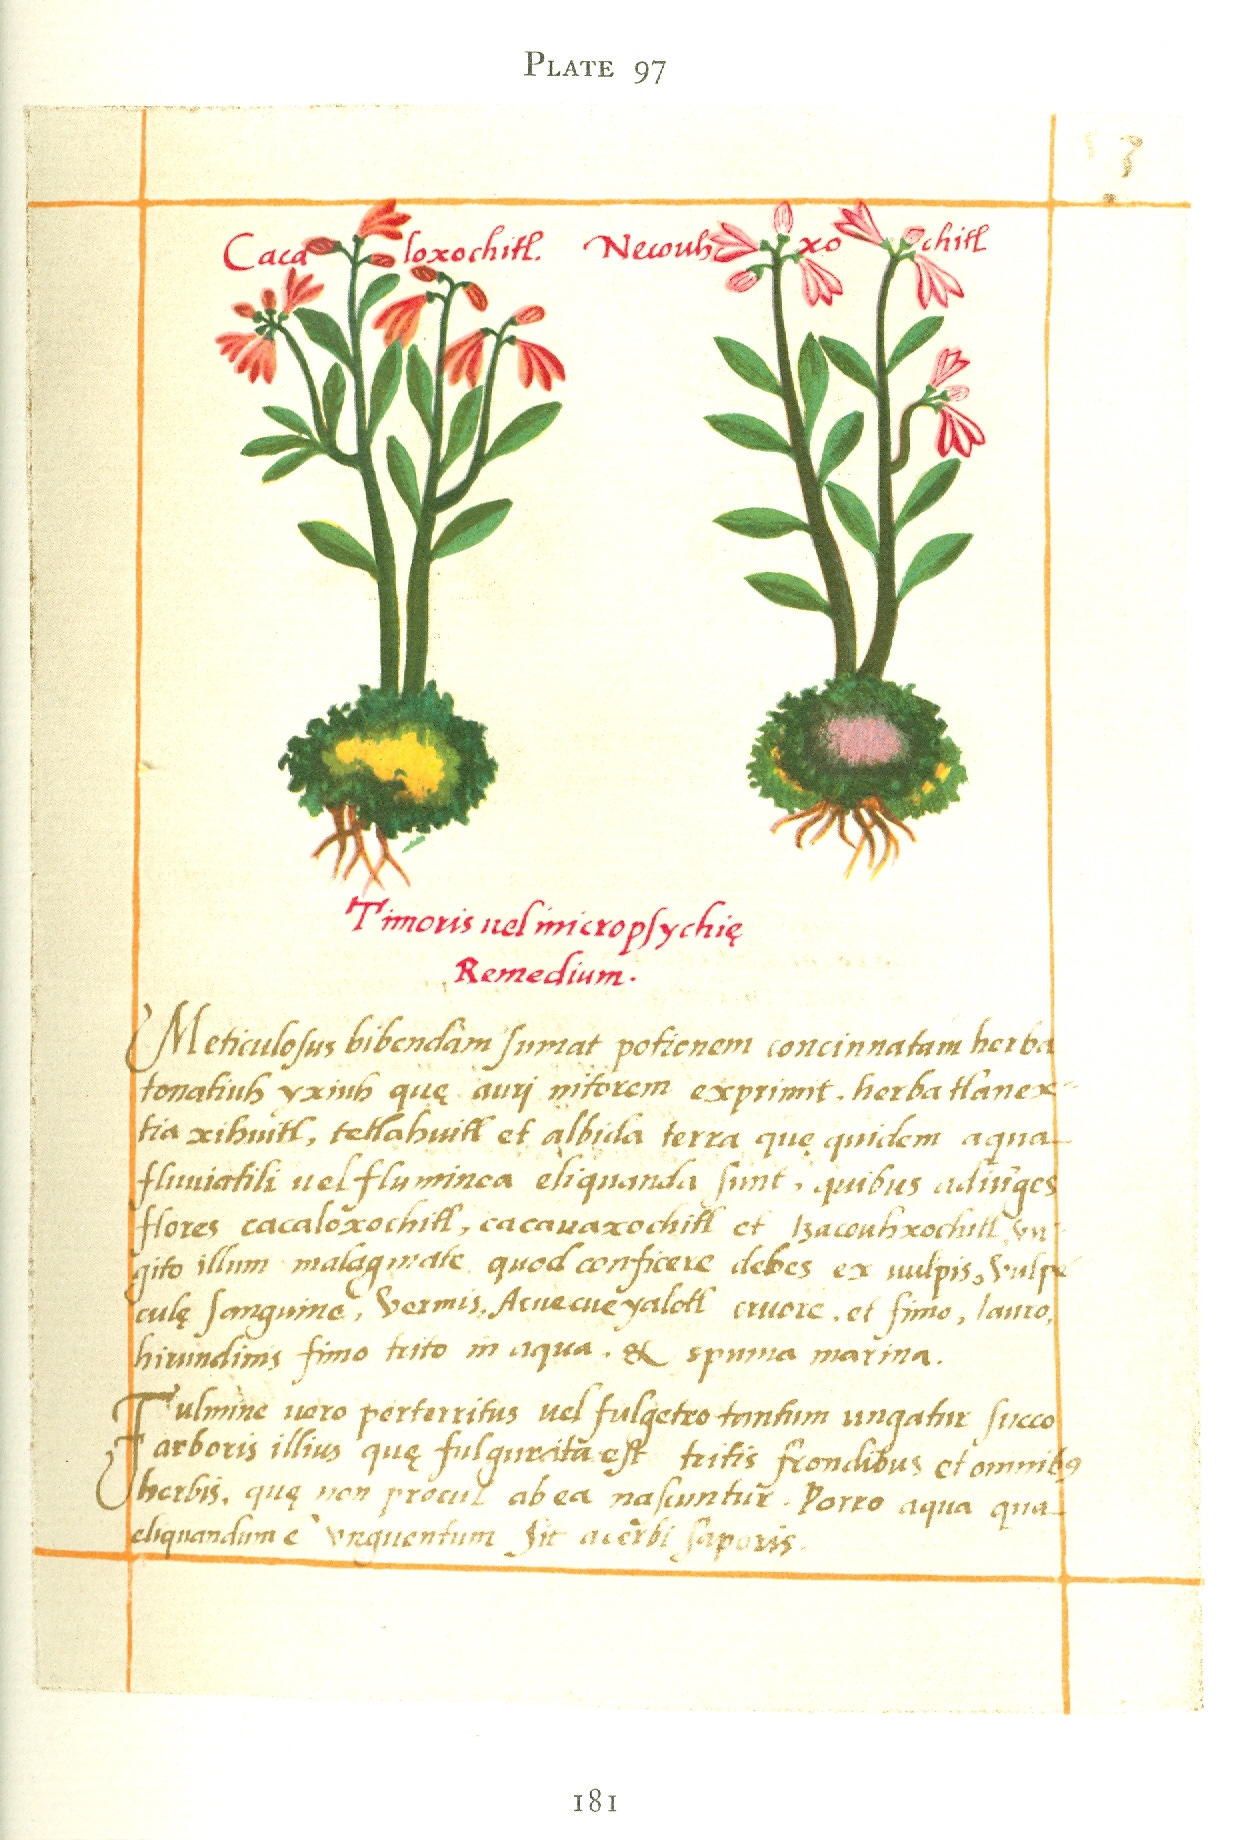 PLATE 97
Cacaloxochitl. Necouhxochitl
Timoris uel micropsychię
Remedium.
Meticulosus bibendam sumat potionem concinnatam herba
tonatiuh yxiuh quę auri nitorem exprimit. herba tlanex-
tia xihuitl, tetlahuitl et albida terra quę quidem aqua
fluuiatili uel fluminea eliquanda sunt, quibus adiũges
flores cacaloxochitl, cacauaxochitl et tzacouhxochitl vn-
gito illum malagmate quod conficere debes ex uulpis, vulpe
culę sanguine, vermis, Acuecueyalotl cruore, et fimo, lauro,
hirundinis fimo trito in aqua, & spuma marina.
Fulmine uero perterritus uel fulgetro tantum ungatur succo
arboris illius quę fulgurita est tritis frondibus et omnibꝰ
herbis, quę non procul ab ea nascuntur. Porro aqua qua
eliquandum ẽ vnguentum sit acerbi saporis.
181